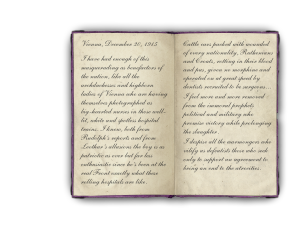 Vienna, December 20, 1915
I have had enough of this
masquerading as benefactors of
the nation, like all the
archduchesses and highborn
ladies of Vienna who are having
themselves photographed as
big-hearted nurses in their well-
lit, white and spotless hospital
trains. I know, both from
Rudolph's reports and from
Lothar's allusions the boy is as
patriotic as ever but far less
enthusiastic since he's been at the
real Front exactly what these
rolling hospitals are like.
Cattle cars packed with wounded
of every nationality, Ruthenians
and Croats, rotting in their blood
and pus, given no morphine and
operated on at great speed by
dentists recruited to be surgeons.
I feel more and more removed
from the immoral prophets
political and military who
promise victory while prolonging
the slaughter.
I despise all the warmongers who
vilify as defeatists those who seek
only to support an agreement to
bring an end to the atrocities.